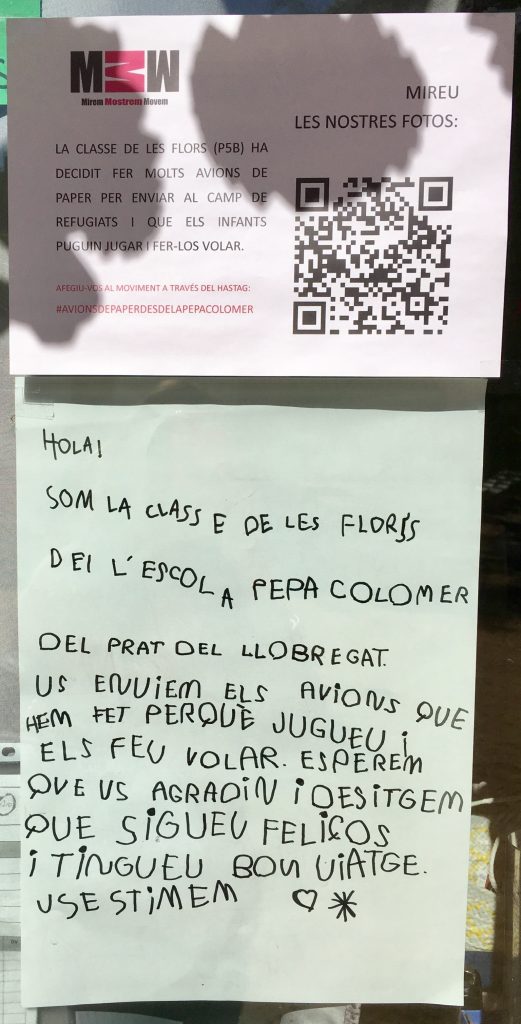 MMW
Mirem Mostrem Movem
LA CLASSE DE LES FLORS (P5B) HA
DECIDIT FER MOLTS AVIONS DE
PAPER PER ENVIAR AL CAMP DE
REFUGIATS I QUE ELS INFANTS
PUGUIN JUGAR I FER-LOS VOLAR.
AFEGIU-VOS AL MOVIMENT A TRAVÉS DEL HASTAG:
#AVIONSDEPAPERDESDELAPEPACOLOMER
MIREU
LES NOSTRES FOTOS:
HOLA!
SOM LA CLASSE DE LES FLORS
DE L'ESCOLA PEPA COLOMER
DEL PRAT DEL LLOBREGAT.
US ENVIEM ELS AVIONS QUE
HEM FET PERQUÈ JUGUEU i
ELS FEU VOLAR. ESPEREM
QUE US AGRADIN i DESITGEM
QUE SIGUEU FELIÇOS
i TINGUEU BON VIATGE.
US ESTIMEM